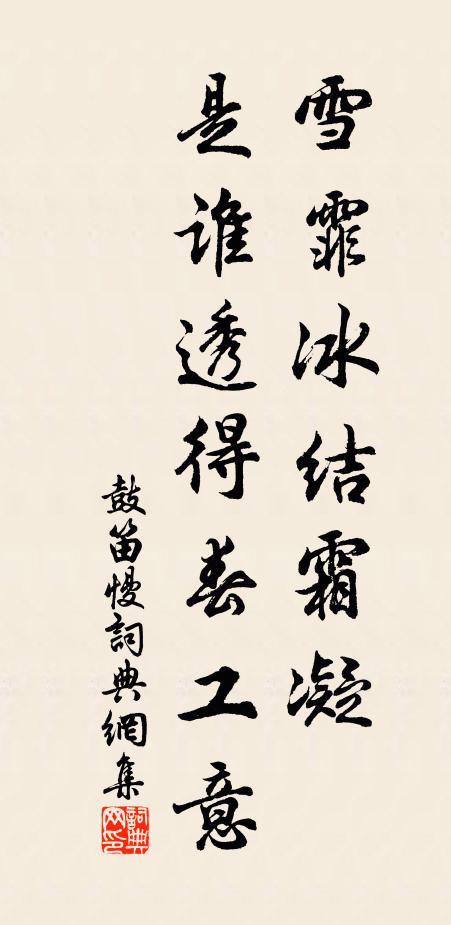 雪霏冰结霜凝
是谁透得春工意
鼓笛慢詞典網集
詞典網印